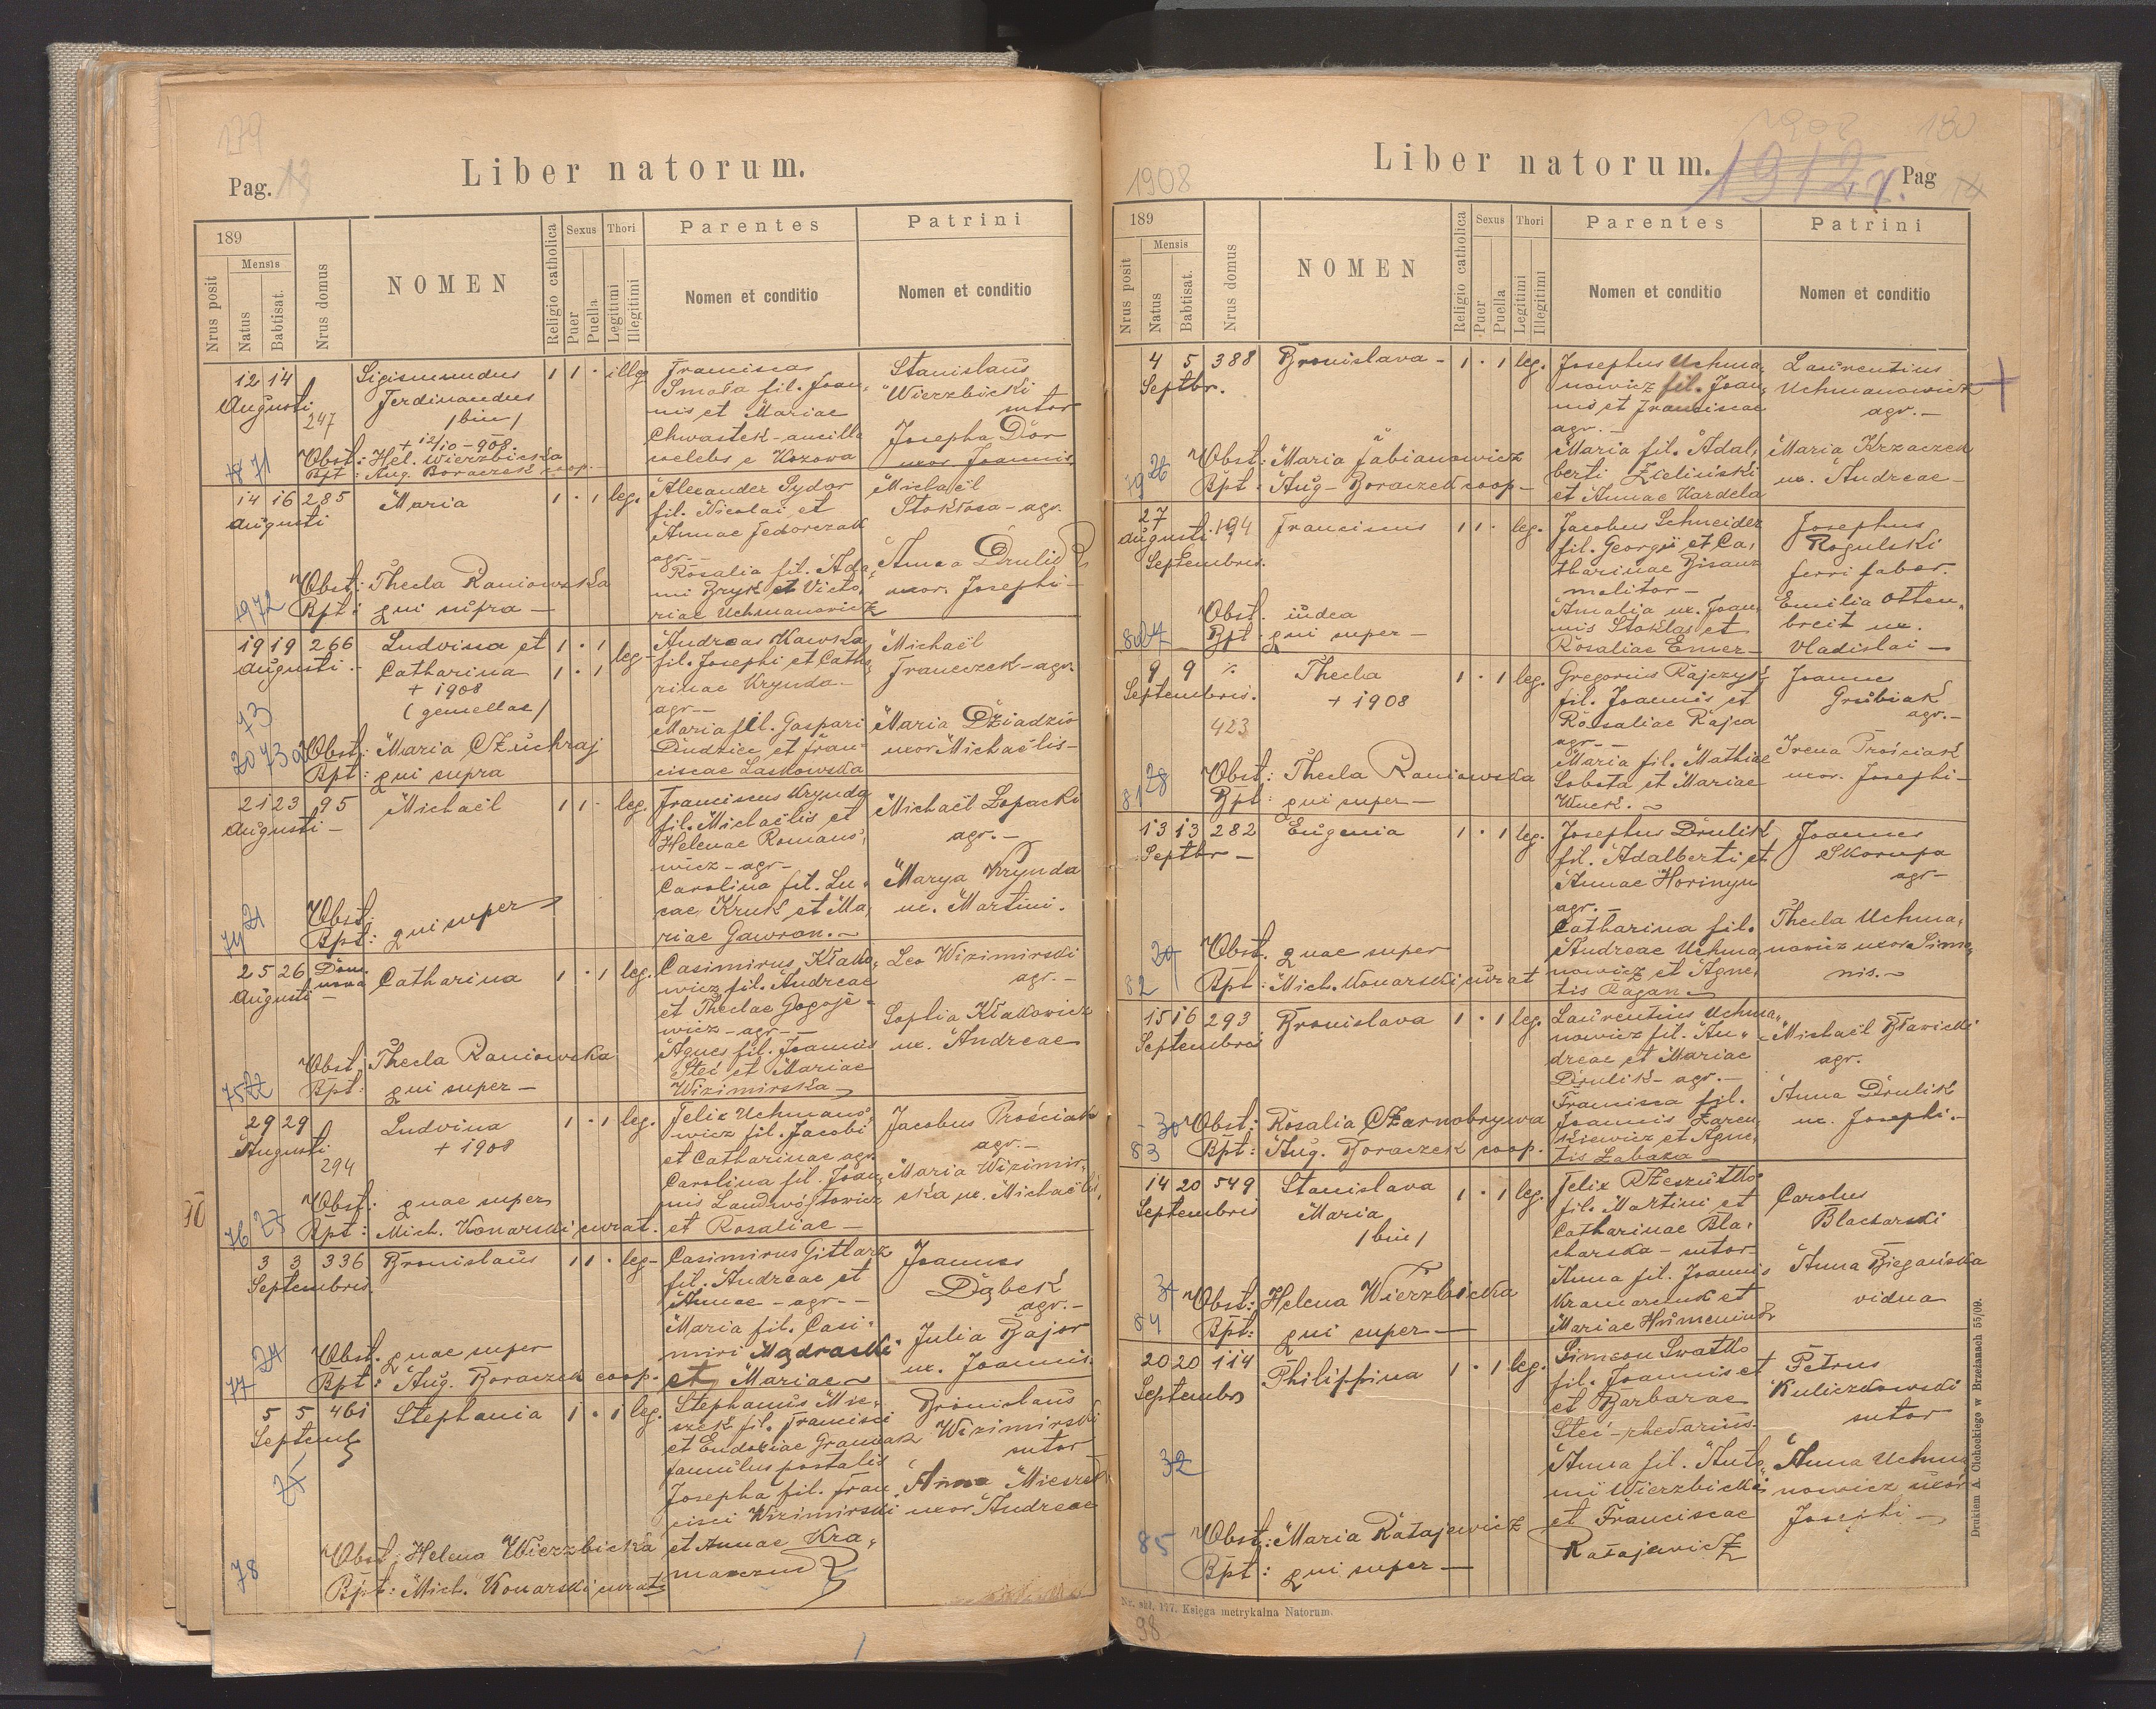 179
Pag. 13
Liber natorum.
189
Mensis
Nrus posit
Natus
Babtisat.
Nrus domus
NOMEN
Religio catholica
Sexus
Puer
Puella
Thori
Legitimi
Illegitimi
Parentes
Nomen et conditio
Patrini
Nomen et conditio
12 14
Augusti
247
Sigismundus
Ferdinandus
/bin/
+ 12/10 - 908.
1 1 · illeg
Francisca
Smała fil. Joan,
nis et Mariae
Chwastek - ancilla
coelebs e Kozowa
Stanislaus
Wierzbicki
sutor
Josepha Dor
uxor Joannis
18 71
Obst: Hel. Wierzbicka
Bpt: Aug. Boraczek coop.
14 16 285
Augusti
Maria
1 · 1 leg.
Alexander Sydor
fil. Nicolai et
Annae Fedorczak
agr. -
Rosalia fil. Ada,
mi Bryk et Victo,
riae Uchmanowicz
Michaël
Stokłosa - agr.
Anna Drulik
uxor. Josephi -
19 72
Obst: Thecla Raniowska
Bpt: qui supra -
19 19 266
Augusti -
Ludvina et 1 · 1
Catharina 1 · 1
leg -
+ 1908
(gemellae)
Andreas Kawska
fil. Josephi et Catha,
rinae Krynda -
agr. -
Maria fil. Gaspari
Dudzice et Fran,
ciscae Laskowska
Michaël
Franczek - agr.
Maria Dziadzio
uxor Michaëlis -
73
20 73a
Obst: Maria Czuchraj
Bpt: qui supra
21 23 95
Augusti -
Michaël
1 1 · leg.
Franciscus Krynda
fil. Michaëlis et
Helenae Romano,
wicz - agr -
Carolina fil. Lu,
cae Kruk et Ma,
riae Gawron. -
Michaël Łopacki
agr. -
Marya Krynda
ux. Martini.
74 21
Obst:
Bpt: qui super
25 26 Dom. nova
Augusti -
Catharina
1 · 1 leg.
Casimirus Kłako,
wicz fil. Andreae
et Theclae Gogoje,
wicz - agr -
Agnes fil. Joannis
Steć et Mariae
Wizimirska -
Leo Wizimirski
agr. -
Sophia Kłakowicz
ux. Andreae
75 22
Obst: Thecla Raniowska
Bpt: qui super -
29 29
Augusti
294
Ludvina
+ 1908
1 · 1 leg.
Felix Uchmano,
wicz fil. Jacobi
et Catharinae agr.
Carolina fil. Joan,
nis Landwójtowicz
et Rosaliae -
Jacobus Prościak
agr. -
Maria Wizimir,
ska ux. Michaëlis,
76 23
Obst: quae super
Bpt: Mich. Konarski curat.
3 3 336
Septembris
Bronislaus
1 1 · leg -
Casimirus Gitlarz
fil. Andreae et
Annae - agr. -
Maria fil. Casi,
miri Mądraski
et Mariae -
Joannes
Dąbek
agr. -
Julia Bajor
ux. Joannis.
77 24
Obst. quae super
Bpt: Aug. Boraczek coop.
5 5 461
Septemb
Stephania
1 · 1 leg.
Stephanus Mie,
szek fil. Francisci
et Eudoxiae Graniak
famulus postalis
Josepha fil. Fran,
cisci Wizimirski
et Annae Kra,
marczuk
Bronislaus
Wizimirski
sutor
Anna Mieszek
uxor Andreae
25
78
Obst: Helena Wierzbicka
Bpt: Mich. Konarski curat
1908
Liber natorum.
1908
1912 r.
180
Pag 14
189
Mensis
Nrus posit
Natus
Babtisat.
Nrus domus
NOMEN
Religio catholica
Sexus
Puer
Puella
Thori
Legitimi
Illegitimi
Parentes
Nomen et conditio
Patrini
Nomen et conditio
4 5 388
Septbr.
Bronislava -
1 · 1 leg.
Josephus Uchma,
nowicz fil. Joan,
nis et Franciscae
agr. -
Maria fil. Adal,
berti Zieliński
et Annae Kardela
Laurentius
Uchmanowicz
agr. -
Maria Krzaczek
ux. Andreae -
79 26
Obst: Maria Fabianowicz
Bpt: Aug. Boraczek coop -
27
Augusti 194
Septembris.
Franciscus
1 1 · leg.
Jacobus Schneider
fil. Georgii et Ca,
tharinae Bisanz
molitor -
Amalia ux. Joan,
nis Stoklas et
Rosaliae Emer -
Josephus
Rogulski
ferri faber.
Emilia Otten,
breit ux.
Vladislai -
80 27
Obst. iudea
Bpt. qui super -
9 9 %
Septembris.
423
Thecla
+ 1908
1 · 1 leg.
Gregorius Rajczyk
fil. Joannis et
Rosaliae Rajca
agr. -
Maria fil. Mathiae
Sobota et Mariae
Wuck. -
Joannes
Grubiak
agr. -
Irena Prościak
uxor. Josephi -
81 28
Obst: Thecla Raniowska
Bpt: qui super -
13 13 282
Septbr -
Eugenia
1 · 1 leg.
Josephus Drulik
fil. Adalberti et
Annae Horinyn
agr. -
Catharina fil.
Andreae Uchma,
nowicz et Agne,
tis Ragan -
Joannes
Skorupa
agr -
Thecla Uchma,
nowicz uxor Simo,
nis. -
82 29
Obst. quae super
Bpt: Mich. Konarski curat
15 16 293
Septembris
Bronislava
1 · 1 leg.
Laurentius Uchma,
nowicz fil. An,
dreae et Mariae
Drulik - agr. -
Francisca fil.
Joannis Zaren,
kiewicz et Agne,
tis Labaza -
Michaël Bławicki
agr.
Anna Drulik
ux. Josephi. -
83 30
Obst: Rosalia Czarnobrywa
Bpt: Aug. Boraczek coop.
14 20 549
Septembris
Stanislava
Maria
/bin/
1 · 1 leg.
Felix Rzeszutko
fil. Martini et
Catharinae Bla,
charska - sutor -
Anna fil. Joannis
Kramarczuk et
Mariae Humeniuk
Carolus
Blacharski
Anna Biegańska
vidua
84 31
Obst: Helena Wierzbicka
Bpt: qui super -
20 20 114
Septembr
Philippina
1 · 1 leg.
Simeon Swatko
fil. Joannis et
et Barbarae
Steć - rhedarius
Anna fil. Anto,
ni Wierzbicki
et Franciscae
Ratajewicz
Petrus
Kuliczkowski
sutor
Anna Uchma,
nowicz uxor
Josephi -
32
85
Obst: Maria Ratajewicz
Bpt: qui super -
Drukiem A. Olchockiego w Brzeżanach 55/09.
Nr. skł. 177. Księga metrykalna Natorum.
98